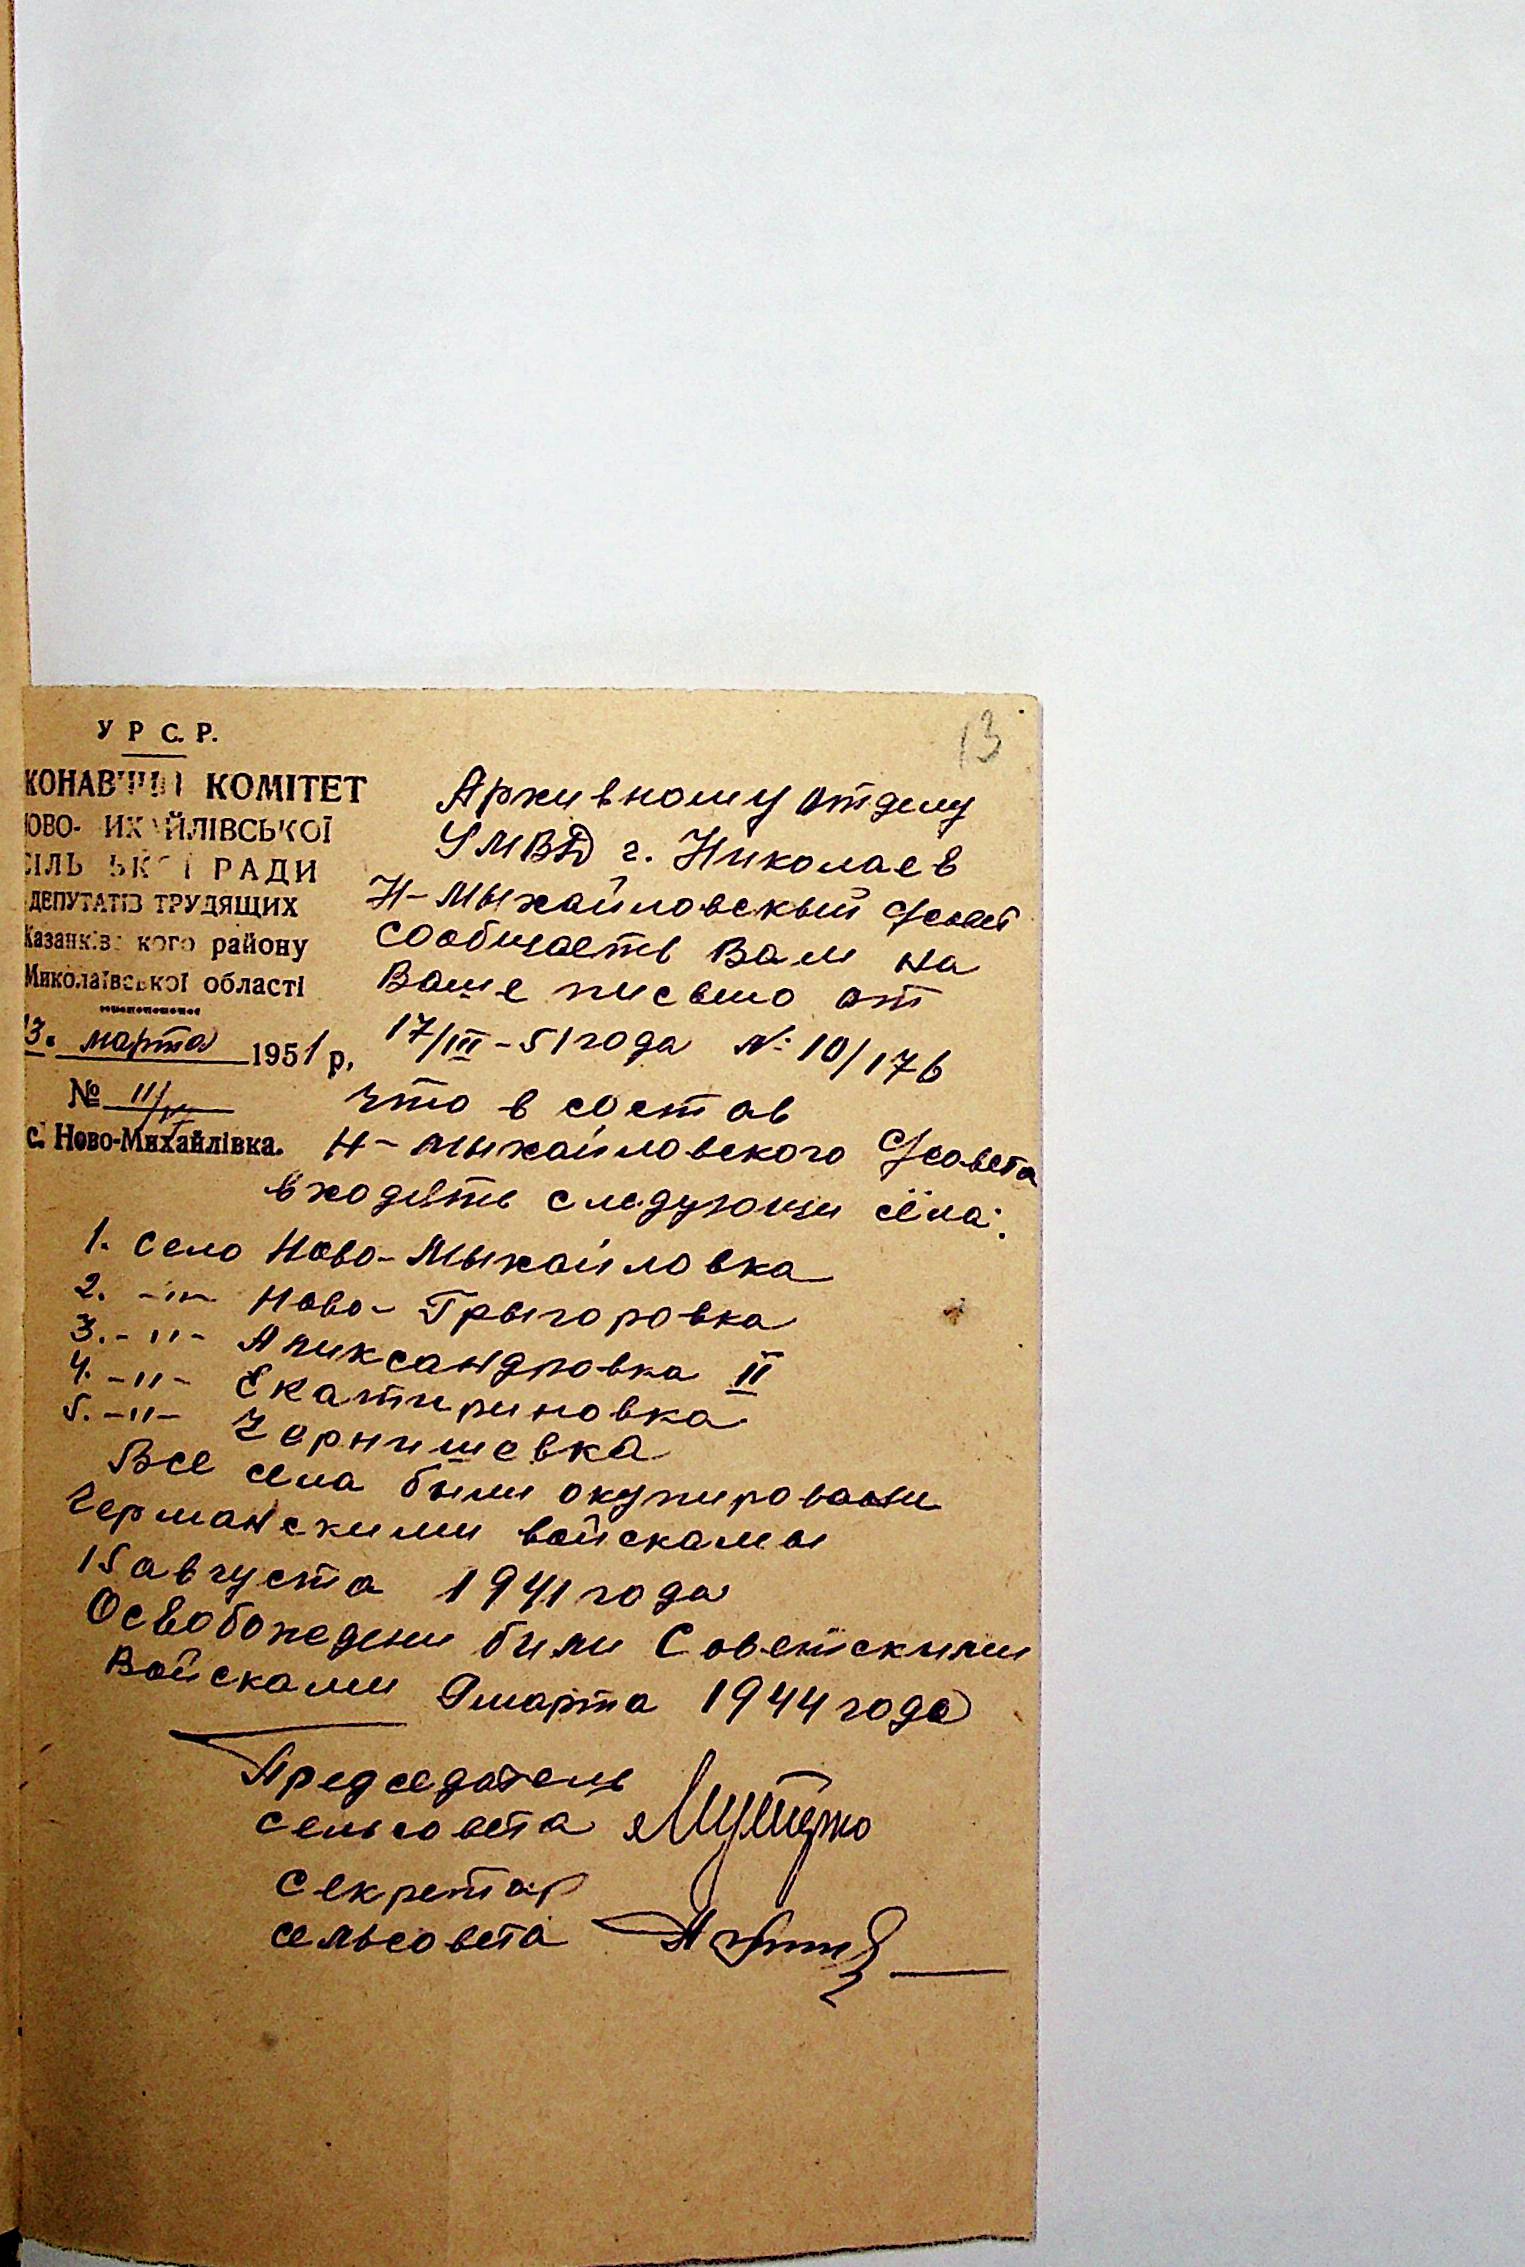 13
У Р С. Р.
КОНАВЧИЙ КОМІТЕТ
ОВО- ИХАЙЛІВСЬКОЇ
СІЛЬ ЬКО І РАДИ
ДЕПУТАТІВ ТРУДЯЩИХ
Казанківс кого району
Миколаївської області
3. марта 1951 р.
№ 11/
с. Ново-Михайлівка.
Архивному отделу
УМВД г. Николаев
Н-Мыхайловскый
сообщаеть Вам на
Ваше письмо от
17/III-51 года №: 10/176
что в состав
Н-Мыхайловского
входять следующи сёла:
1. село Ново-Мыхайловка
2. -"- Ново-Грыгоровка
3. -"- Аликсандровка II
4. -"- Екатириновка
5. -"- Чернишевка
Все села были окупировани
германскими войскамы
15 августа 1941 года
Освобождени били Советскыми
Войсками 9 марта 1944 года
Председатель
сельсовета
Секретар
сельсовета